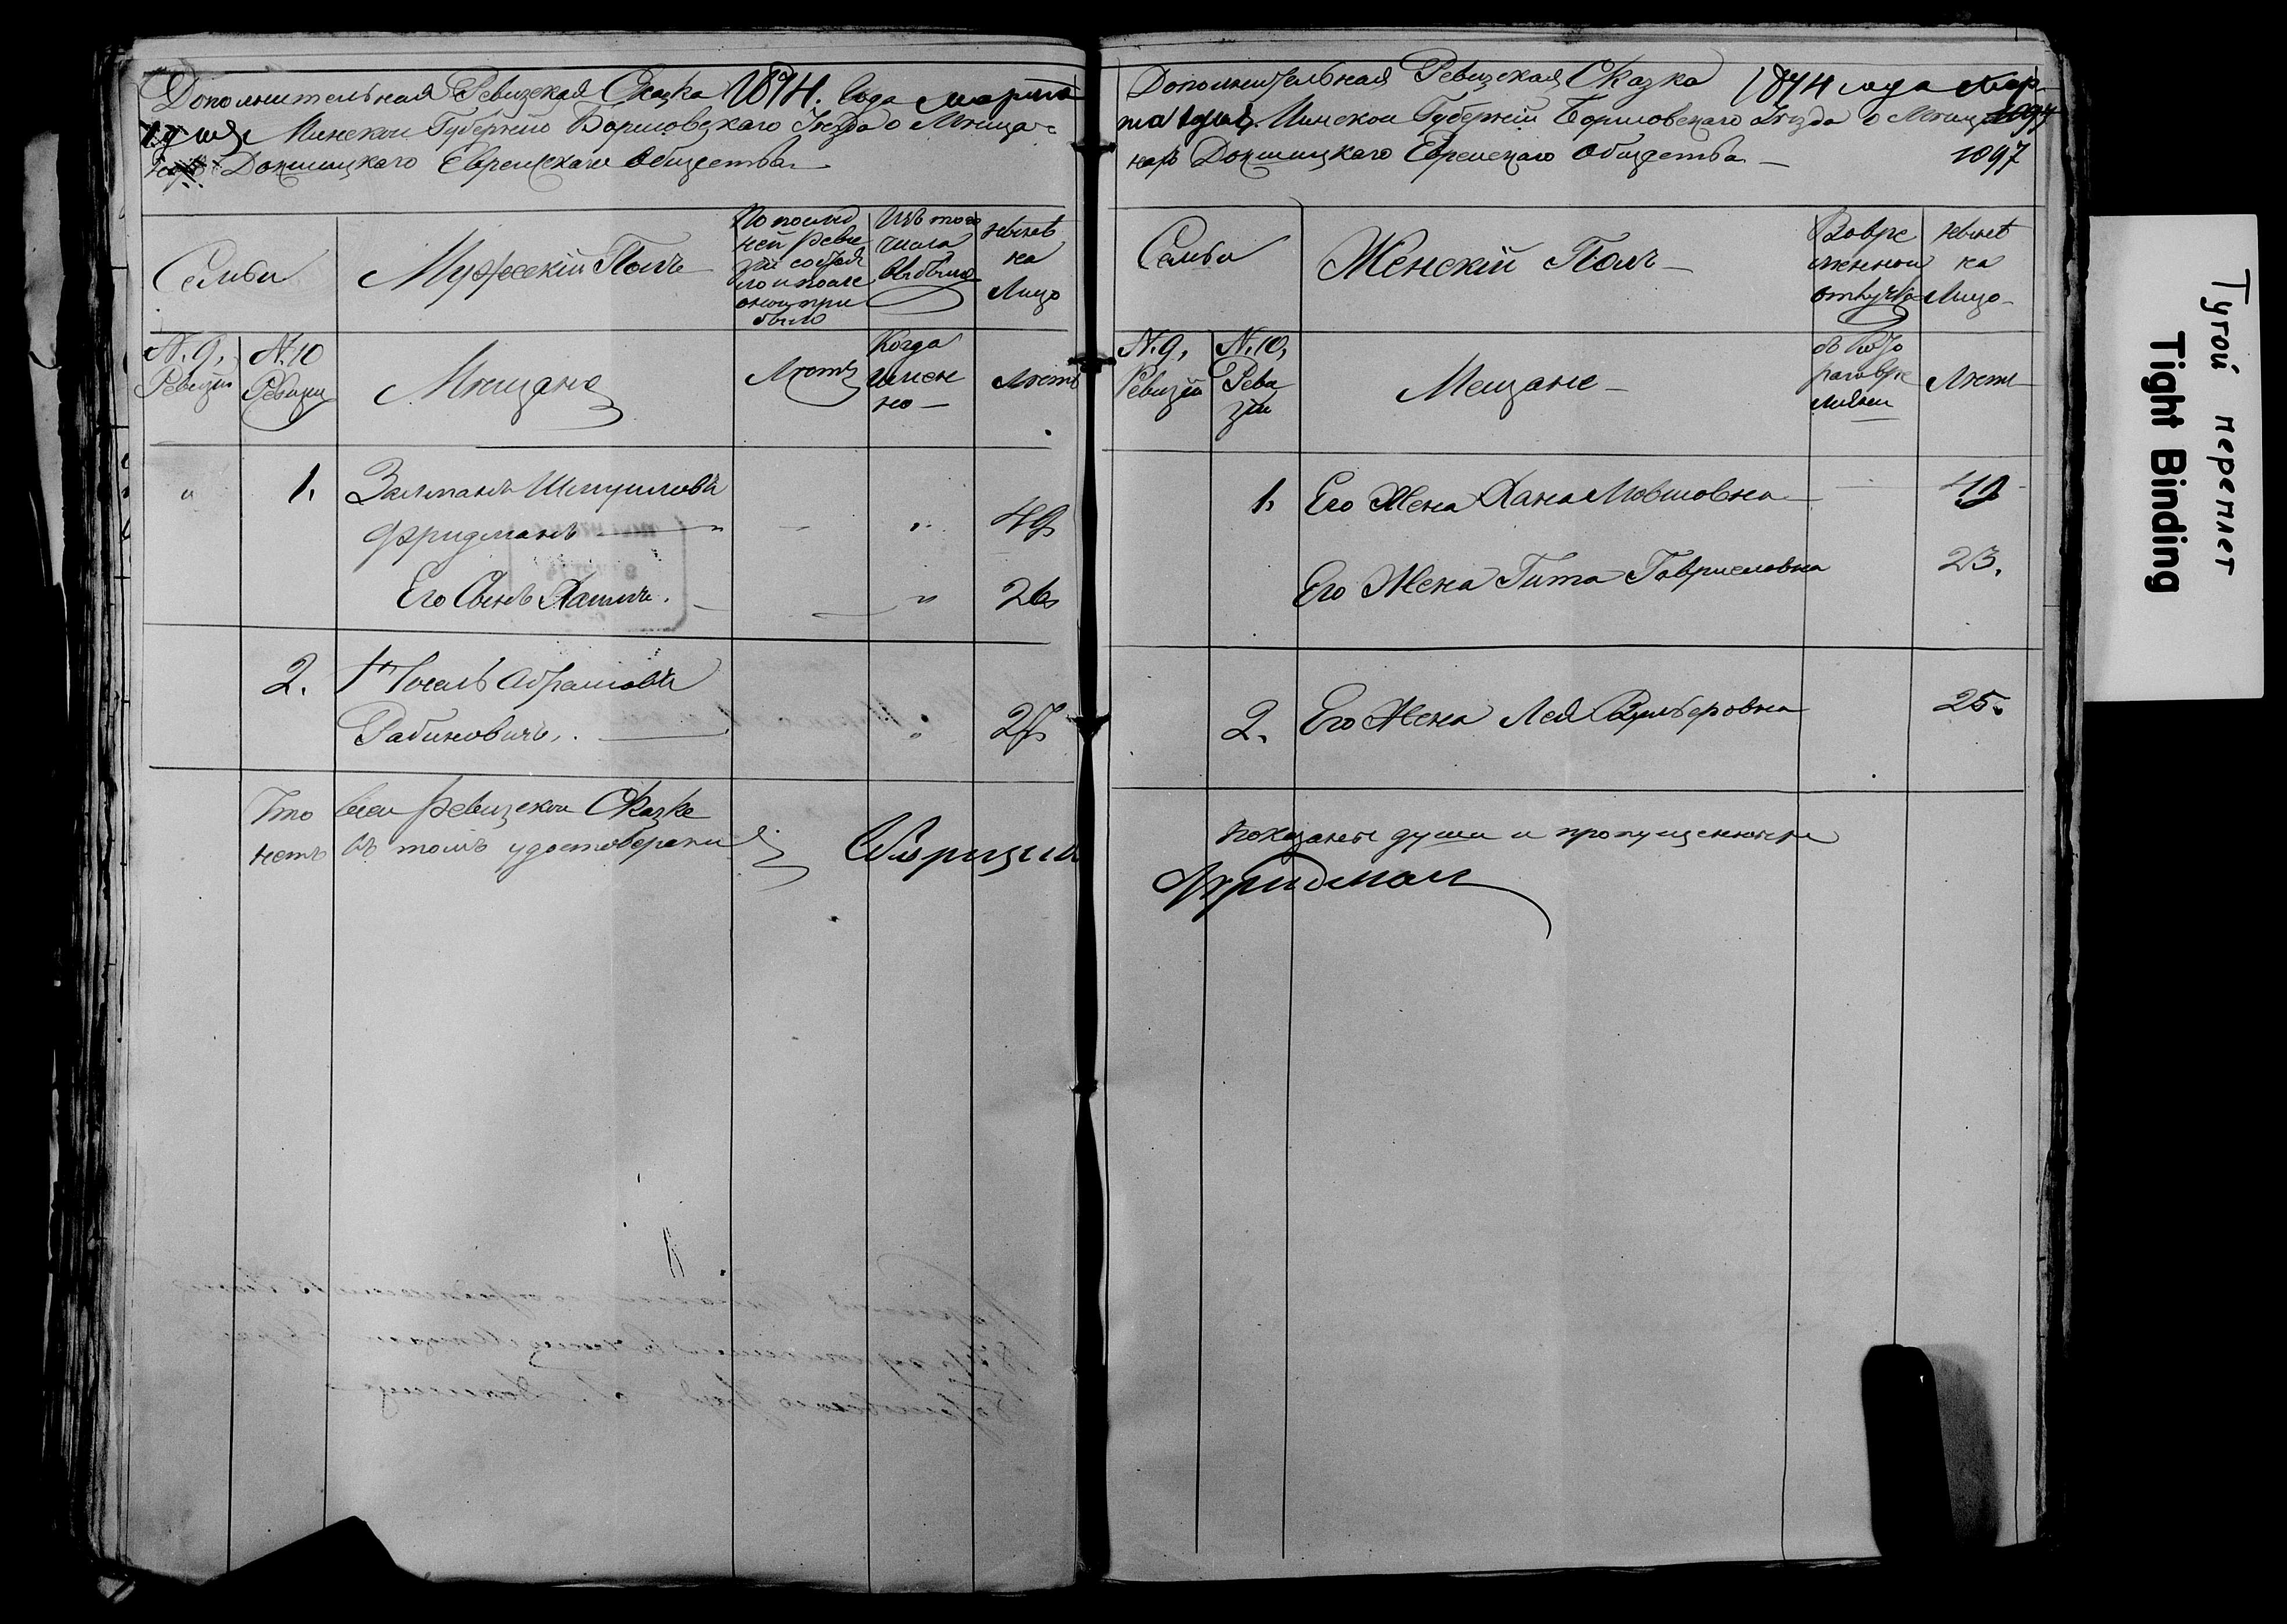 Дополнительная Ревизская Сказка 1874. Года марта
1 дня Минской Губернiи Борисовскаго Уезда о Мѣща-
нахъ Докшицкаго Еврейскаго Общества
Семьи
Мужескiй Полъ
По послѣд
ней реви
зiи состоя
ло и после
оной при
было
Изъ того
числа
выбыло
ныне
на
Лицо
N. 9,
Ревизiи
N. 10
Ревизiи
Мѣщане
Лѣтъ
Когда
имен
но
Лѣтъ
1. Залманъ Шмуиловъ
Фридманъ 49
Его Сынъ Хаимъ. 26
2. Iосель Абрамовъ
Рабиновичъ, 27
Что всей ревизской Сказке
нетъ въ томъ удостоверяю
Дополнительная Ревизская Сказка 1874 года Мар-
та 1 дня. Минской Губернiи Борисовскаго Уѣзда о Мѣща
нахъ Докшицкаго Еврейскаго Общества 1097
Семьи
Женскiй Полъ
Вовре
менной
отлучке
ныне
на
Лицо
N. 9,
Ревизiи
N. 10,
Реви
зiи
Мещане
съ кото
раго вре
мени
Лѣтъ
1, Его Жена Хана Мовшовна
Его Жена Гита Гаврiеловна 23.
2. Его Жена Лея 25.
показаны души и пропущенныхъ
Фридман
Тугой переплет
Tight Binding